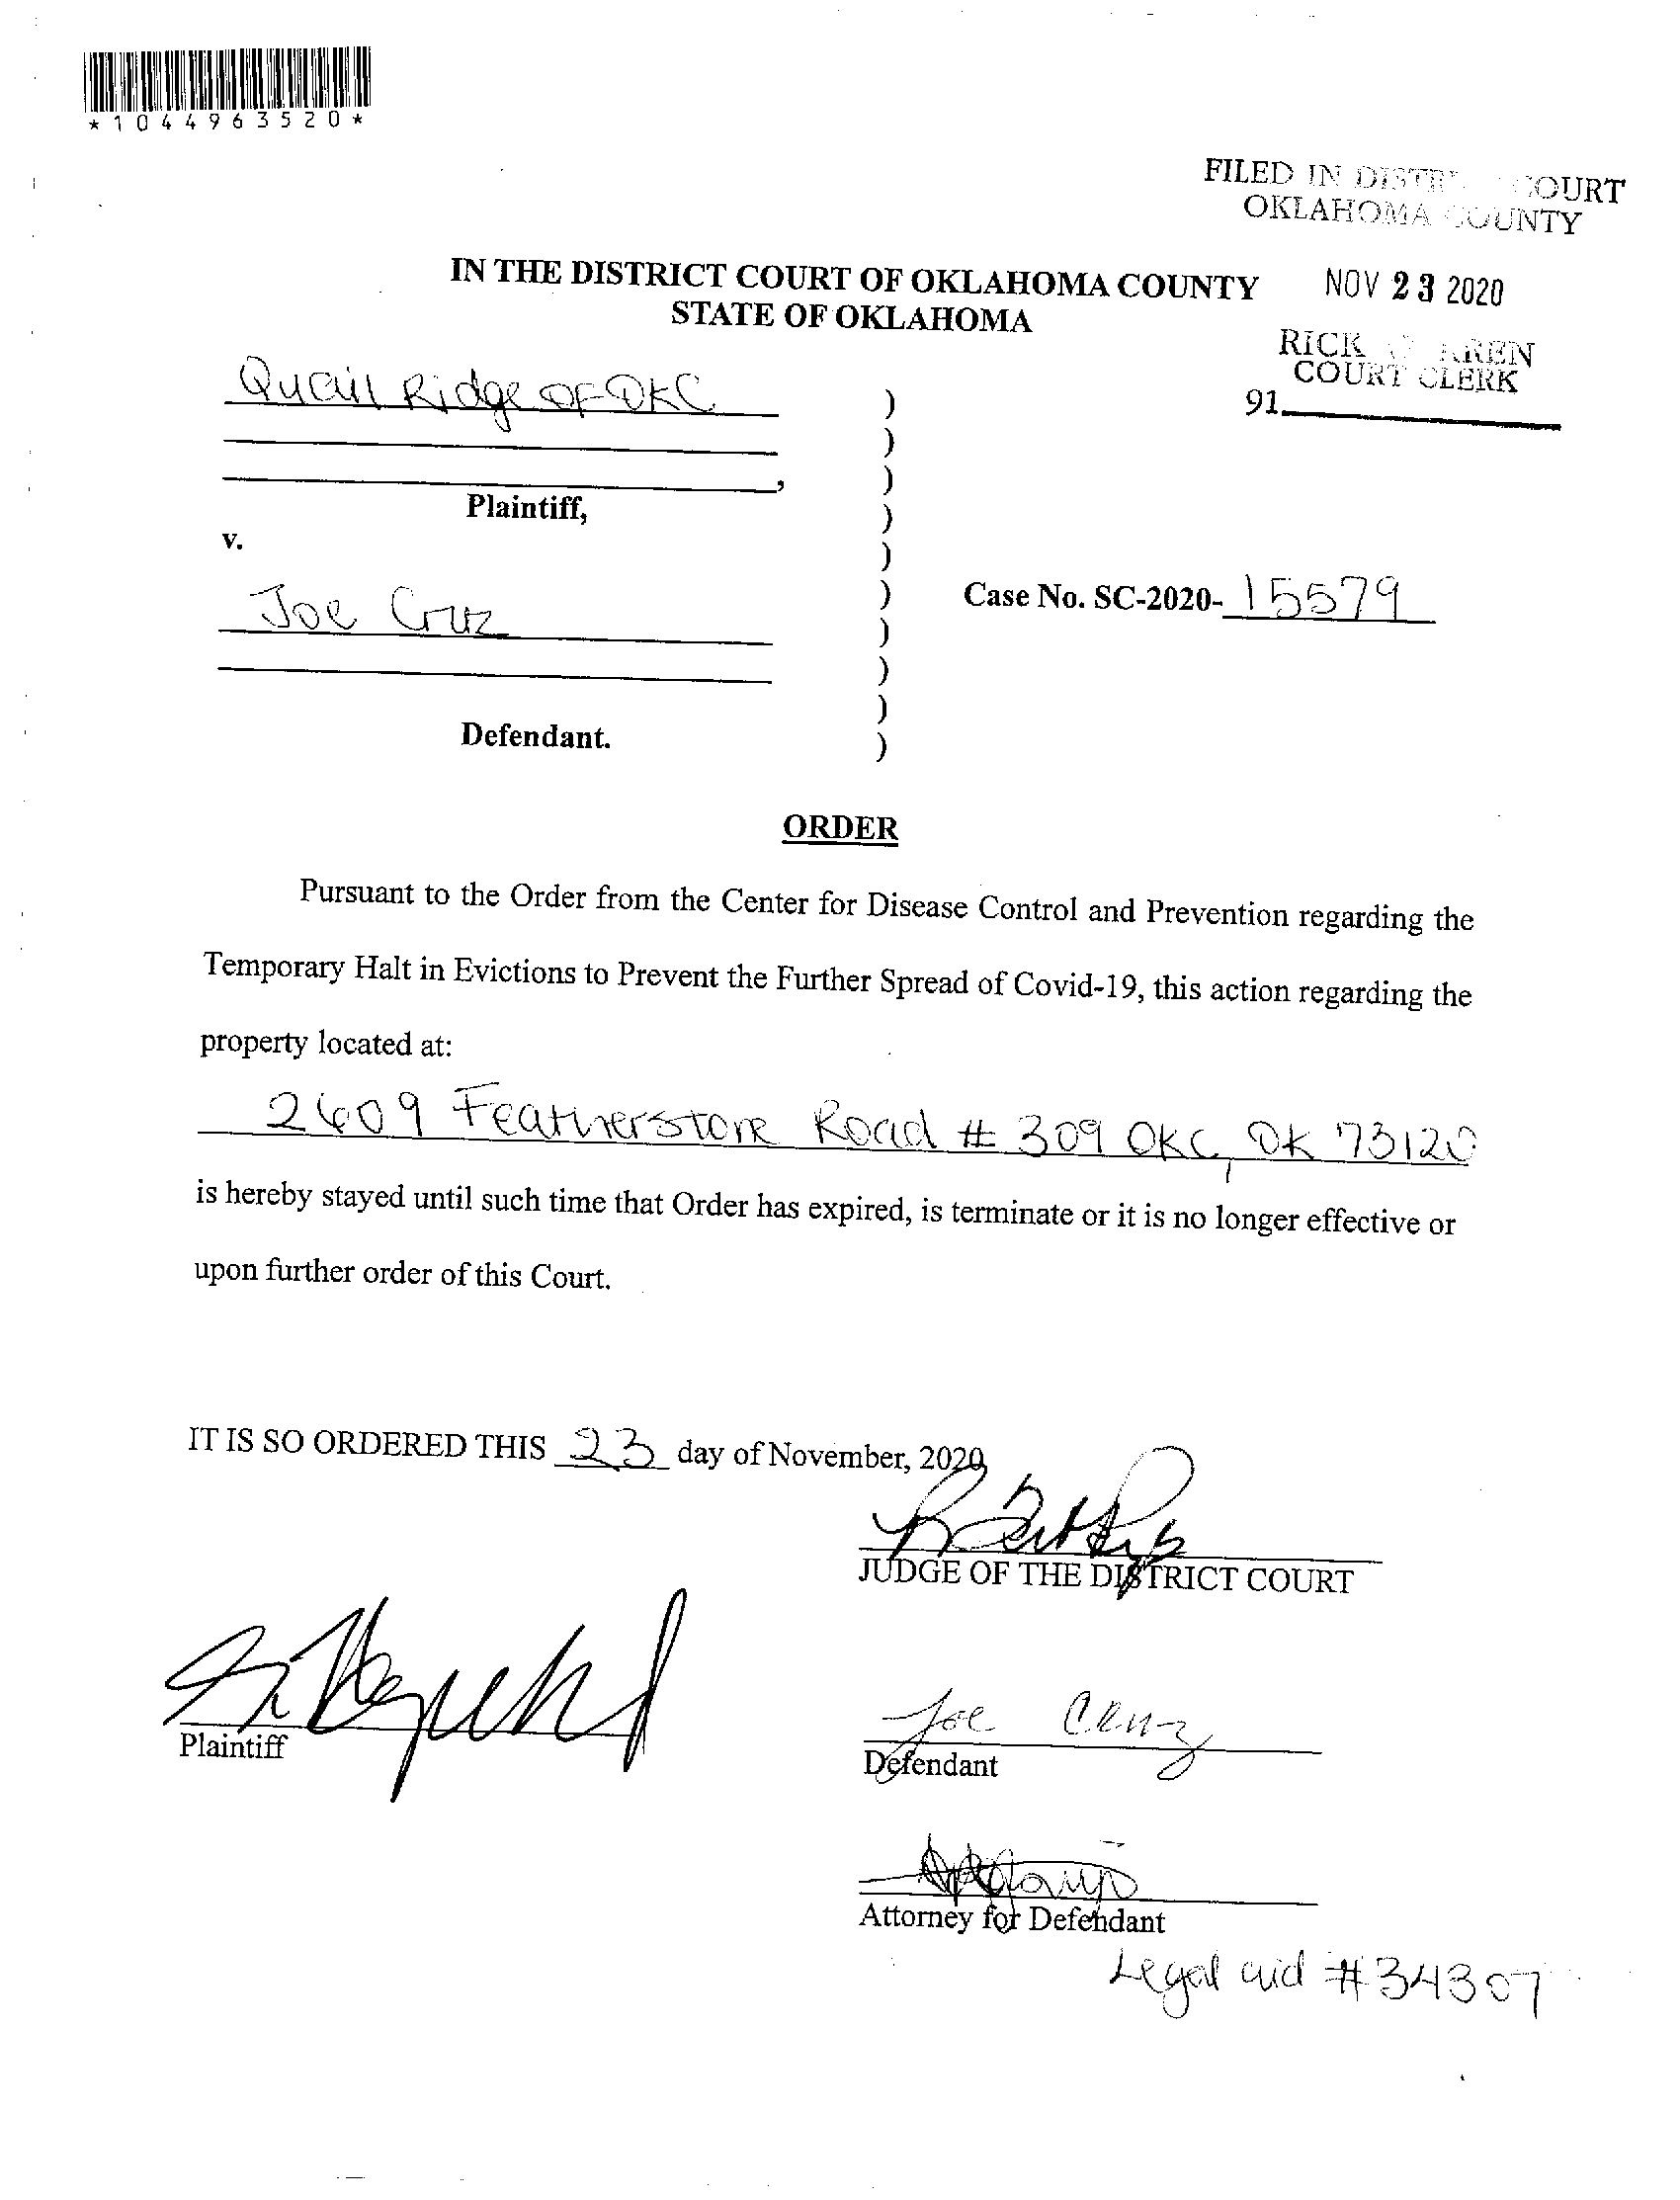 *1044963520*
FILED IN DISTR COURT
OKLAHOMA COUNTY
IN THE DISTRICT COURT OF OKLAHOMA COUNTY
STATE OF OKLAHOMA
NOV 23 2020
RICK
COURT CLERK
91
Quail Ridge OF OKC
)
)
,
)
Plaintiff,
)
v.
)
Joe Cruz
)
Case No. SC-2020- 15579
)
)
)
Defendant.
)
ORDER
Pursuant to the Order from the Center for Disease Control and Prevention regarding the
Temporary Halt in Evictions to Prevent the Further Spread of Covid-19, this action regarding the
property located at:
2609 Featherstone Road # 309 OKC, OK 73120
is hereby stayed until such time that Order has expired, is terminate or it is no longer effective or
upon further order of this Court.
IT IS SO ORDERED THIS 23 day of November, 2020
JUDGE OF THE DISTRICT COURT
Plaintiff
Joe Cruz
Defendant
Attorney for Defendant
Legal aid #34307